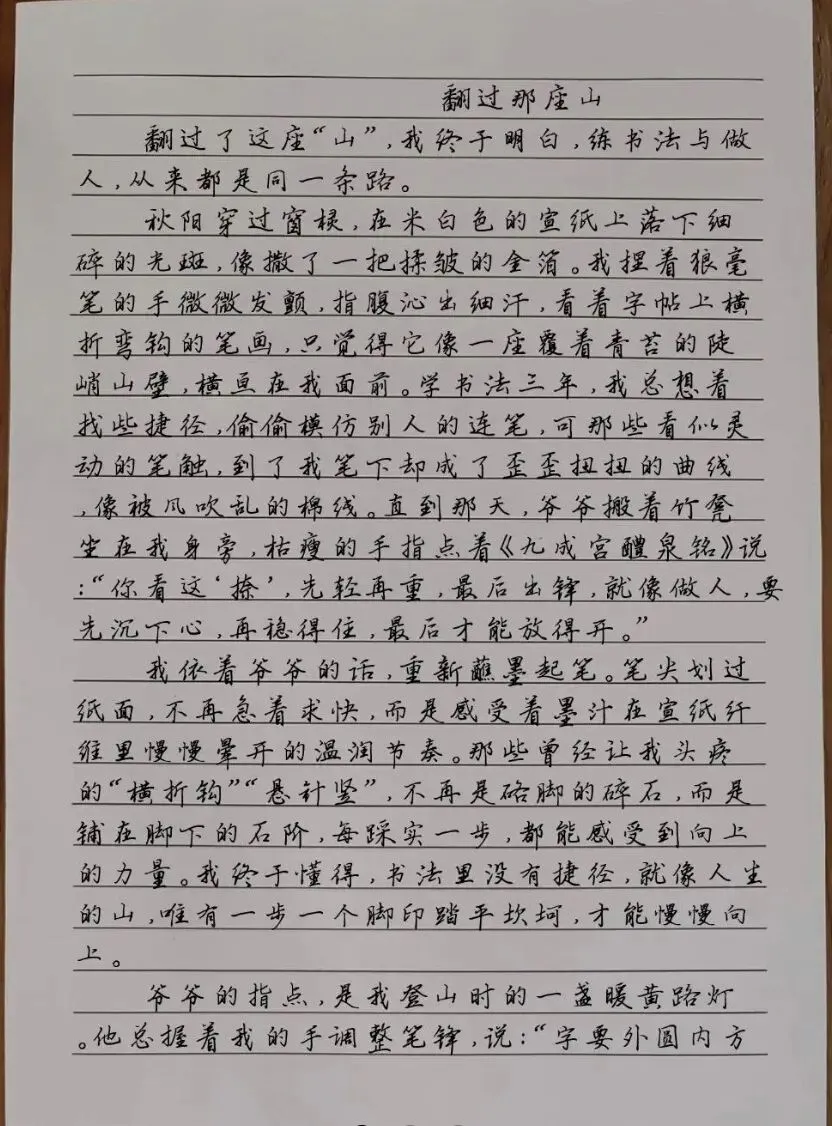 翻过那座山
翻过了这座“山”，我终于明白，练书法与做
人，从来都是同一条路。
秋阳穿过窗棂，在米白色的宣纸上落下细
碎的光斑，像撒了一把揉皱的金箔。我捏着狼毫
笔的手微微发颤，指腹沁出细汗，看着字帖上横
折弯钩的笔画，只觉得它像一座覆着青苔的陡
峭山壁，横亘在我面前。学书法三年，我总想着
找些捷径，偷偷模仿别人的连笔，可那些看似灵
动的笔触，到了我笔下却成了歪歪扭扭的曲线
，像被风吹乱的棉线。直到那天，爷爷搬着竹凳
坐在我身旁，枯瘦的手指点着《九成宫醴泉铭》说
：“你看这‘捺’，先轻再重，最后出锋，就像做人，要
先沉下心，再稳得住，最后才能放得开。”
我依着爷爷的话，重新蘸墨起笔。笔尖划过
纸面，不再急着求快，而是感受着墨汁在宣纸纤
维里慢慢晕开的温润节奏。那些曾经让我头疼
的“横折钩”“悬针竖”，不再是硌脚的碎石，而是
铺在脚下的石阶，每踩实一步，都能感受到向上
的力量。我终于懂得，书法里没有捷径，就像人生
的山，唯有一步一个脚印踏平坎坷，才能慢慢向
上。
爷爷的指点，是我登山时的一盏暖黄路灯
。他总握着我的手调整笔锋，说：“字要外圆内方